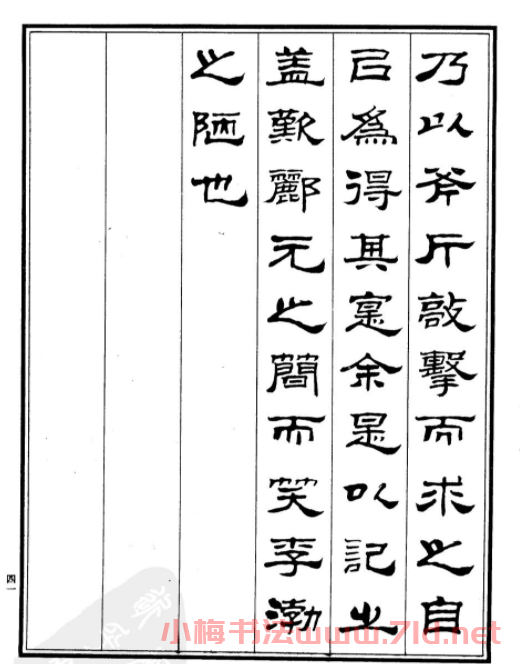 乃以斧斤敲擊而求之自
㠯爲得其寔余是以記之
盖歎酈元之簡而笑李渤
之陋也
四一
小梅书法www.7ld.net